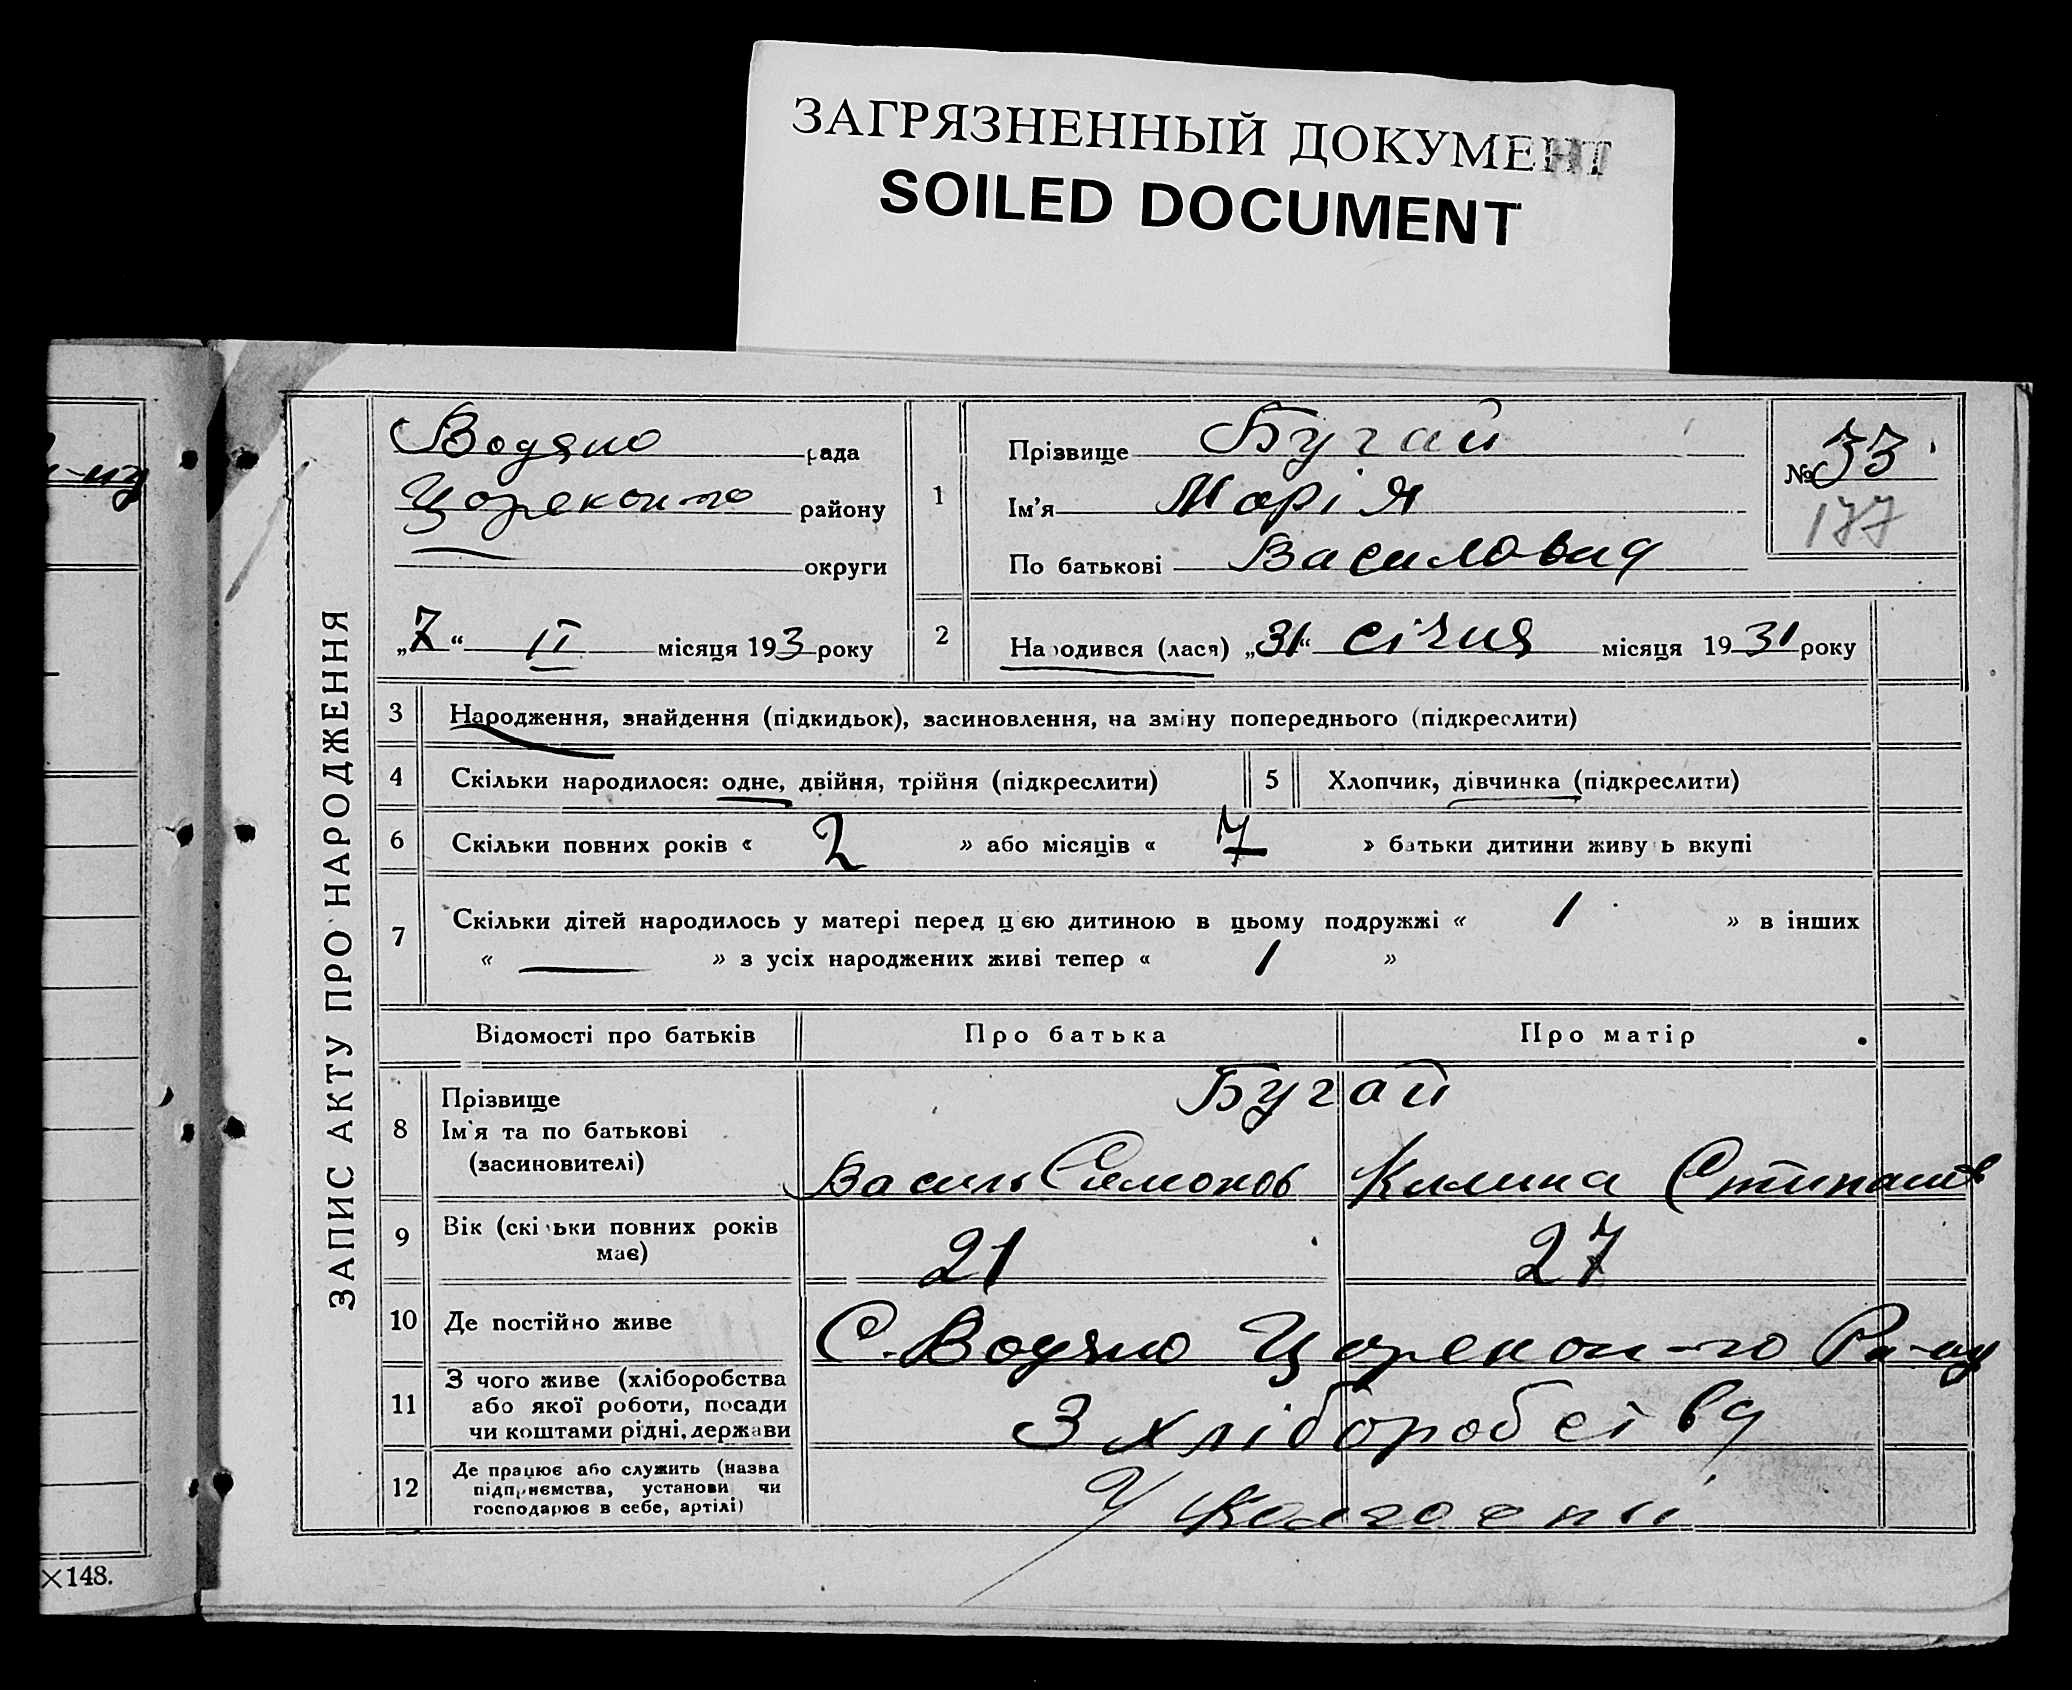 ЗАГРЯЗНЕННЫЙ ДОКУМЕНТ
SOILED DOCUMENT
ЗАПИС АКТУ ПРО НАРОДЖЕННЯ
Водяно рада
района
округи
„7“ II місяця 193 3 року
1
Прізвище Бугай
Ім'я Марія
По батькові Василовна
№ 33
177
2 Народився (лася) „31“ січня місяця 19 31 року
3 Народження, знайдення (підкидьок), засиновлення, на зміну попереднього (підкреслити)
4 Скільки народилося: одне, двійня, трійня (підкреслити)
5 Хлопчик, дівчинка (підкреслити)
6 Скільки повних років « 2 » або місяців « 7 » батьки дитини живуть вкупі
7 Скільки дітей народилось у матері перед цією дитиною в цьому подружжі « 1 » в інших
« — » з усіх народжених живі тепер « 1 »
Відомості про батьків Про батька Про матір
8 Прізвище Бугай
Ім'я та по батькові
(засиновителі) Василь Симонов Килина
9 Вік (скільки повних років
має) 21 27
10 Де постійно живе С. Водяно Царекон-го Ра-ну
11 З чого живе (хліборобства
або якої роботи, посади
чи коштами рідні, держави З хліборобства
12 Де працює або служить (назва
підприємства, установи чи
господарює в себе, артілі) У
×148.